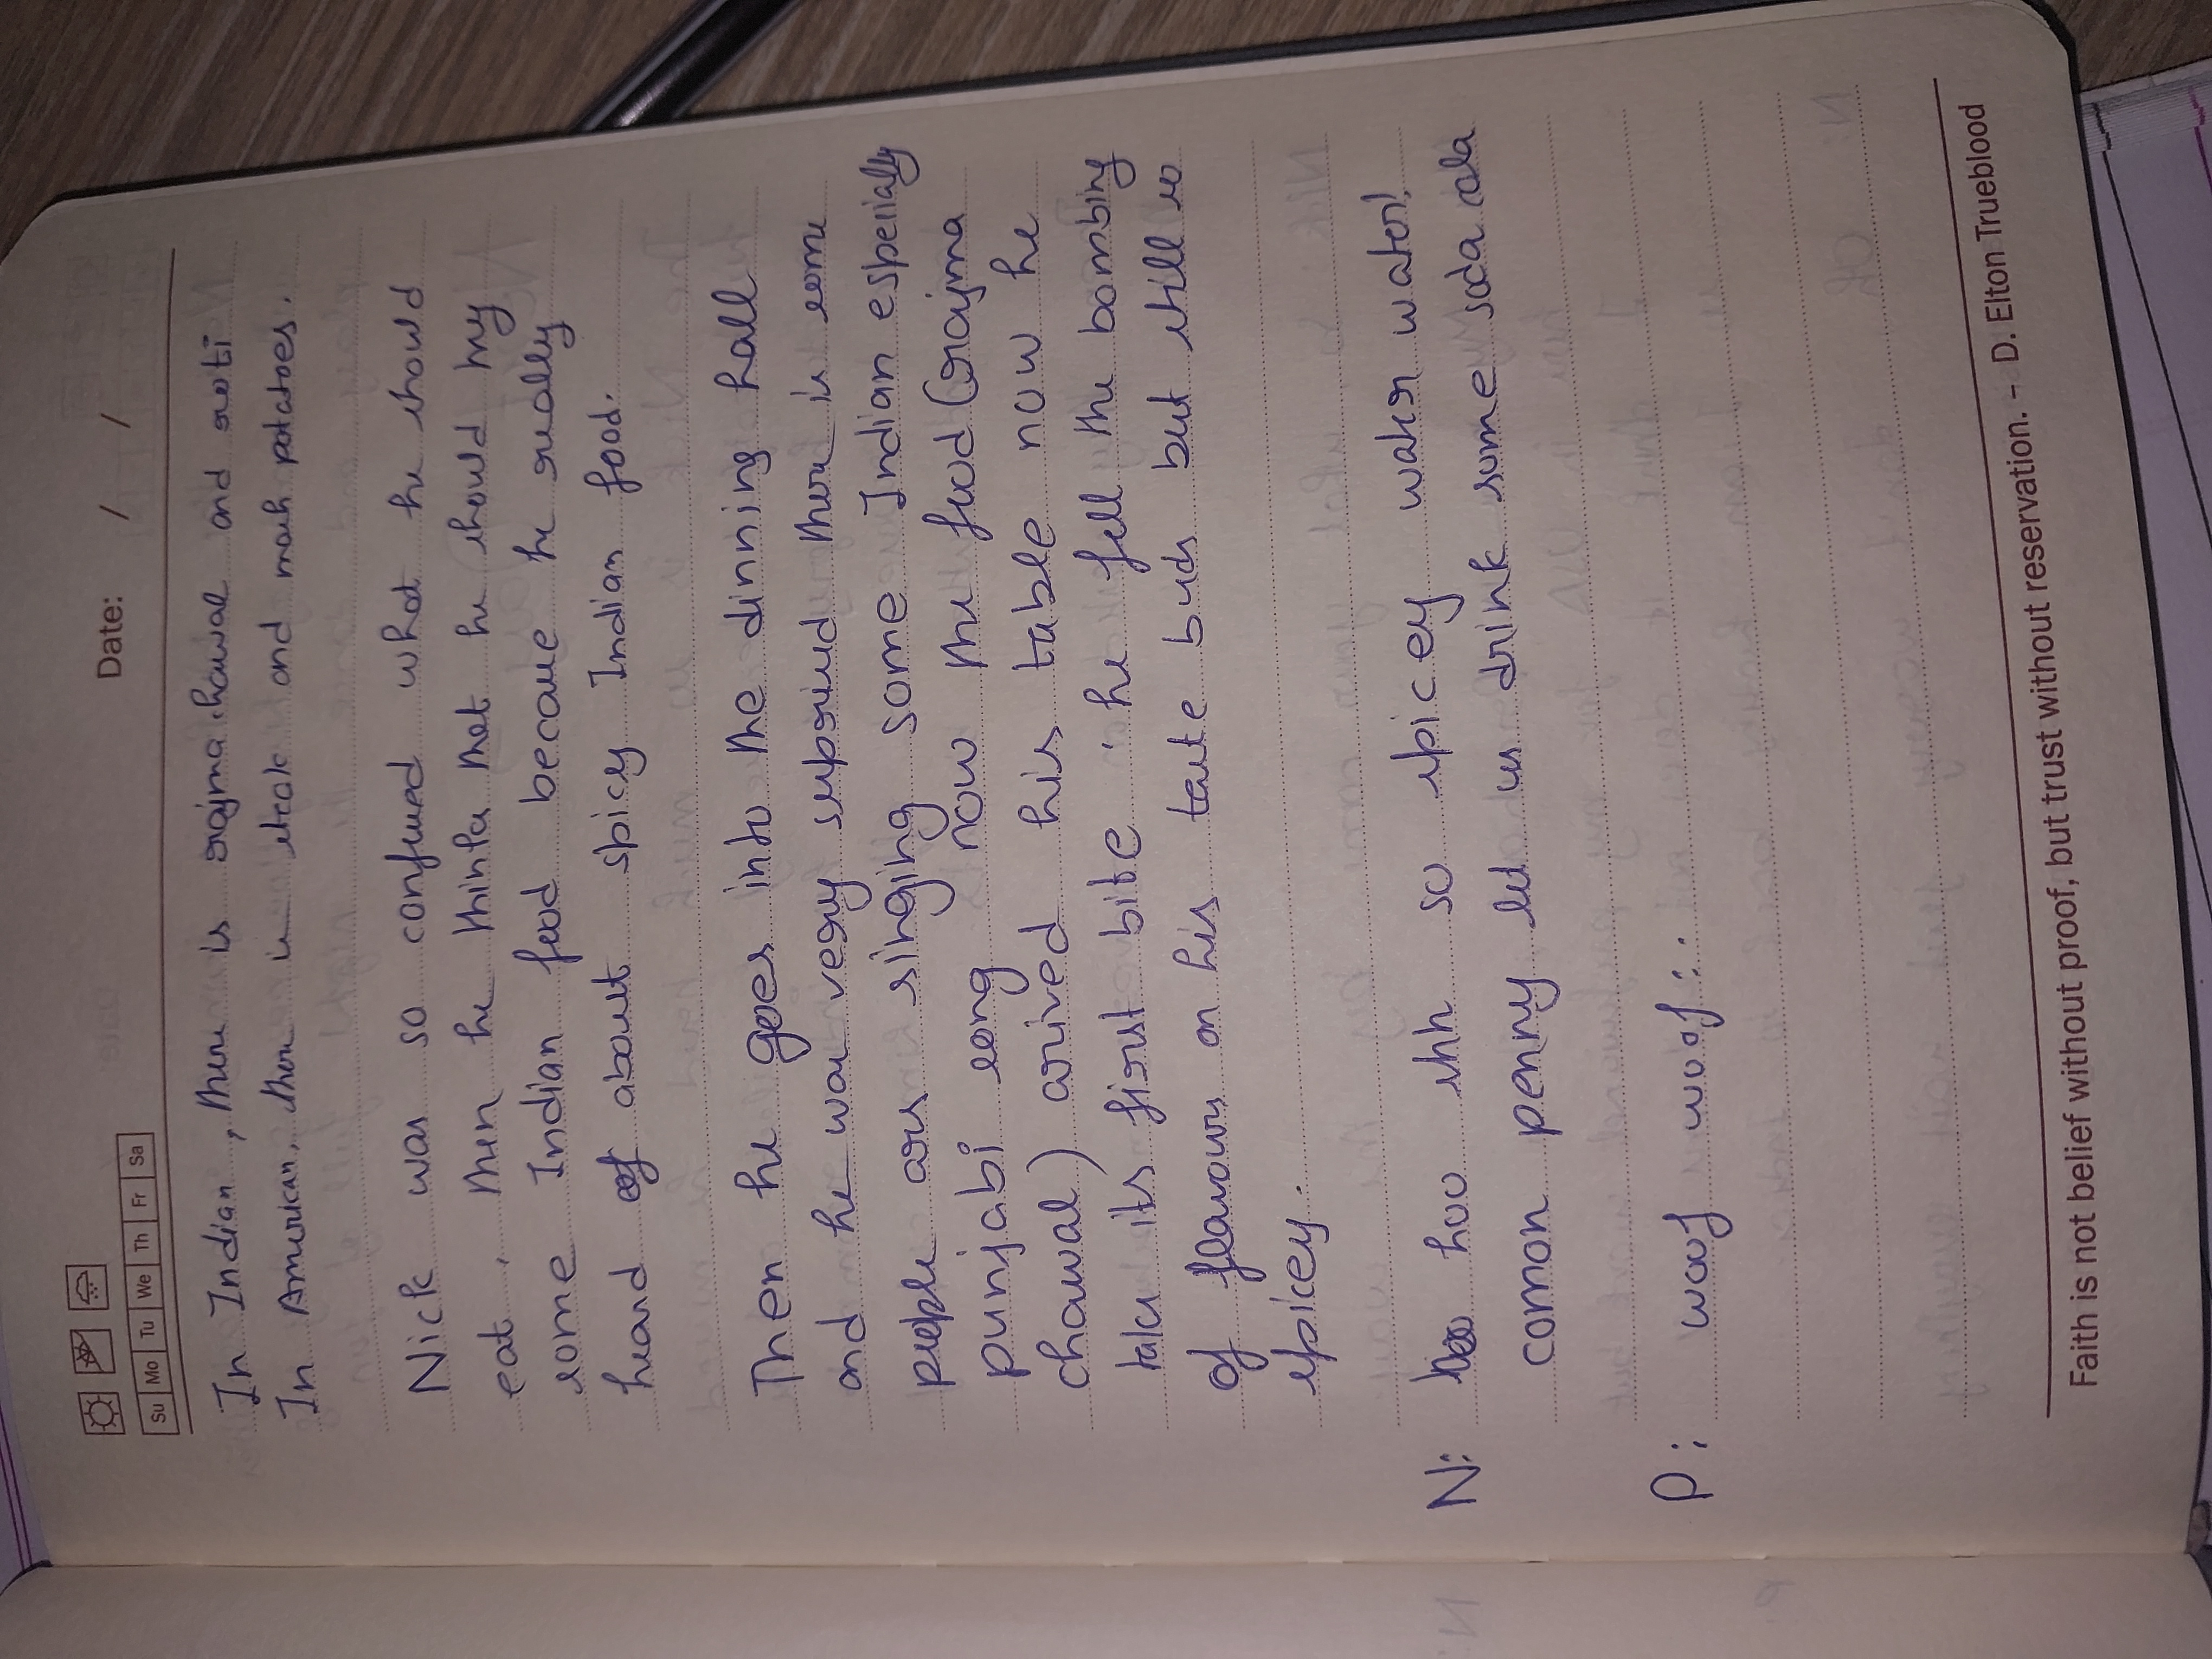 Date: / /
Su Mo Tu We Th Fr Sa
In Indian, there is rajma chawal and roti
In American, there is steak and mash potatoes.
Nick was so confused what he should
eat. Then he thinks that he should try
some Indian food because he really
heard of about spicy Indian food.
Then he goes into the dinning hall
and he was very suprised there is some
people are singing some Indian especially
punjabi song now now the food (rajma
chawal) arived his table now he
take its first bite. he fell the bombing
of flavours on his taste buds but still so
spicey.
N: hoo shh so spicey water water!
comon penny let us drink some soda cola
P: woof woof...
Faith is not belief without proof, but trust without reservation. - D. Elton Trueblood